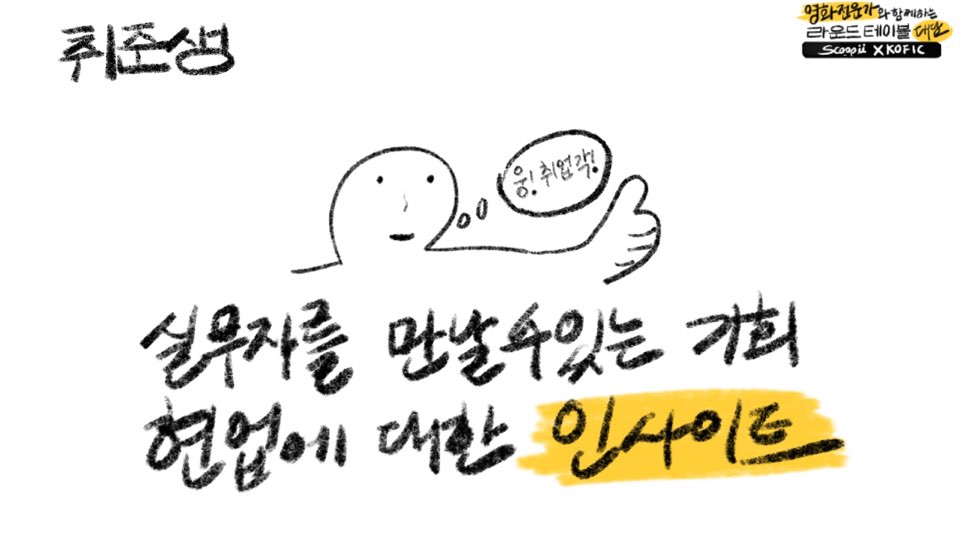 취준생
영화전문가와 함께하는
라운드테이블 대담
Scoopii X KOFIC
웅! 취업각!
실무자를 만날 수 있는 기회
현업에 대한 인사이트